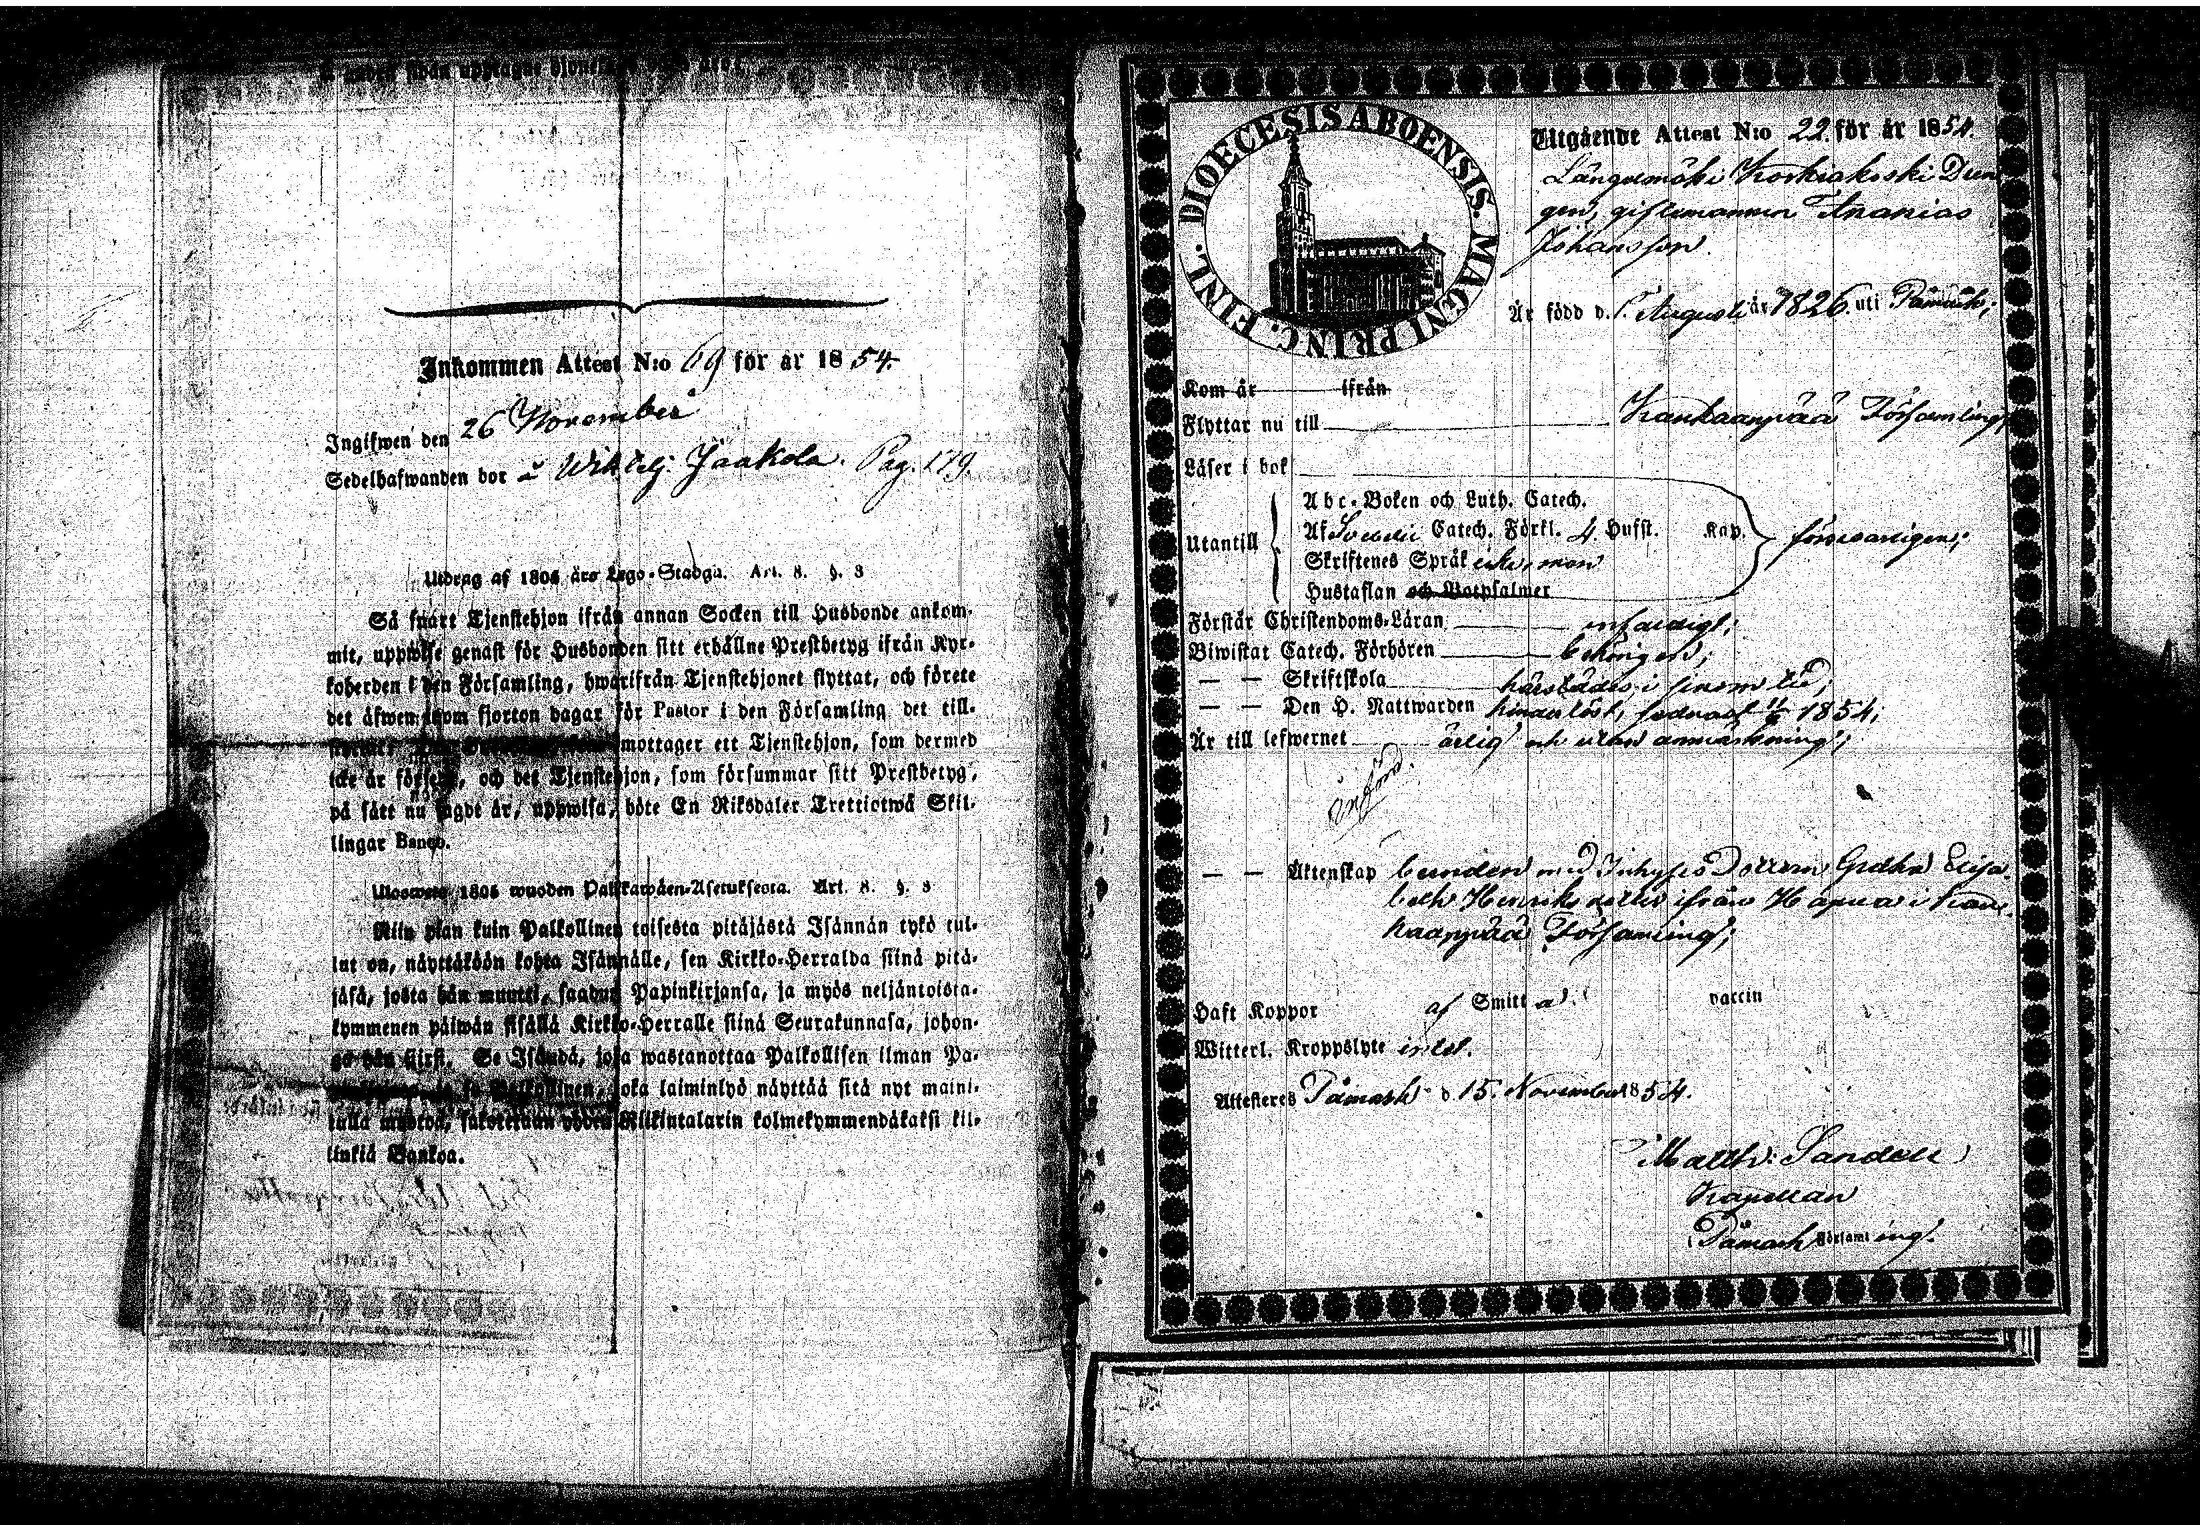 Inkommen Attest N:o 69 för år 1854.
Ingifwen den 26 November
Sedelhafwanden bor å Jaakola. Pag. 179.
Utdrag af 1805 års Lego-Stadga. Art. 8. §. 3
Så snart Tjenstehjon ifrån annan Socken till Husbonde ankom-
mit, uppwise genast för Husbonden sitt erhållne Prestbetyg ifrån Kyr-
koherden i den Församling, hwarifrån Tjenstehjonet flyttat, och förete
det äfwen inom fjorton dagar för Pastor i den Församling det till-
mottager ett Tjenstehjon, som dermed
icke är försedt, och det Tjenstehjon, som försummar sitt Prestbetyg,
på sätt nu sagdt är, uppwisa, böte En Riksdaler Trettiotwå Skil-
lingar Banco.
Ulosweto 1805 wuoden Palkawäen-Asetuksesta. Art. 8. §. 3
Niin pian kuin Palkollinen toisesta pitäjästä Isännän tykö tul-
lut on, näyttäköön kohta Isännälle, sen Kirkko-Herralda siinä pitä-
jäsä, josta hän muutti, saadun Papinkirjansa, ja myös neljäntoista-
kymmenen päiwän sisällä Kirkko-Herralle siinä Seurakunnasa, johon-
ga hän siirsi. Se Isändä, joka wastanottaa Palkollisen ilman Pa-
ja se Palkollinen, joka laiminlyö näyttää sitä nyt maini-
tulla muotoa, sakotetaan yhden Riikintalarin kolmekymmendäkaksi kil-
linkiä Bankoa.
DIOECESIS ABOENSIS. MAGNI PRINC. FINL.
Utgående Attest N:o 22 för år 1854.
Långelmäki Korkiakoski Dren
gen, giftemannen Ananias
Johansson
Är född d. 1. Augusti år 1826 uti Pämark;
Kom år ifrån
Flyttar nu till Kankaanpää Församling,
Läser i bok
Utantill
Abc-Boken och Luth. Catech.
Af Svebelii Catech. Förkl. 4 Hufst. Kap. försvarligen;
Skriftenes Språk
Hustaflan och Botpsalmer
Förstår Christendoms-Läran enfaldigt;
Biwistat Catech. Förhören behörigen;
— — Skriftskola härstädes i sinom tid;
— — Den H. Nattwarden hinderlöst, sednast 11/6 1854;
Är till lefwernet ärlig och utan anmärkning;
Införd.
— — Äktenskap bunden med Inhyses Dottren Gretha Elisa
beth Henriksdotter ifrån Hapua i Kan
kaanpää Församling;
Haft Koppor af Smitta. vaccin
Witterl. Kroppslyte intet.
Attesteres Påmark d. 15. November 1854.
Matth: Sandell
Kapellan
i Påmark Församling.